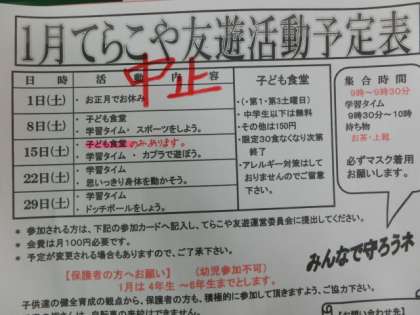 1月てらこや友遊活動予定表
中止
日 時 活 動 内 容
1日(土) ・お正月でお休み
8日(土) ・子ども食堂
学習タイム・スポーツをしよう。
15日(土) ・子ども食堂のみあります。
学習タイム・カプラで遊ぼう。
22日(土) ・学習タイム
・思いっきり身体を動かそう。
29日(土) ・学習タイム
・ドッチボールをしよう。
子ども食堂
・(・第1・第3土曜日)
・中学生以下は無料
・その他は150円
・限定30食なくなり次第
終了
・アレルギー対策はして
おりませんのでご留意
下さい。
集合時間
9時~9時30分
学習タイム
9時30分~10時
持ち物
お茶・上靴
必ずマスク着用
お願いします。
* 参加される方は、下記の参加カードへ記入し、てらこや友遊運営委員会に提出してください。
* 会費は月100円必要です。
* 予定が変更される場合もありますので、ご了承下さい。
みんなで守ろうネ
【保護者の方へお願い】 (幼児参加不可)
1月は4年生 ~6年生までとします。
子供達の健全育成の観点から、保護者の方も、積極的に参加して頂きますよう、ご協力下さい。